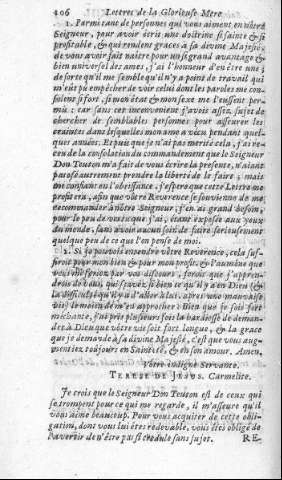 406 Lettres de la Glorieuse Mere
1. Parmi tant de personnes qui vous aiment en nôtre
Seigneur, pour avoir écris une doctrine si sainte & si
profitable, & qui rendent graces à sa divine Majesté,
de vous avoir fait naitre pour un si grand avantage &
bien universel des ames, j'ai l'honneur d'en être une;
de sorte qu'il me semble qu'il n'y a point de travail qui
m'eût pû empêcher de voir celui dont les paroles me con-
solent si fort, si mon état & mon sexe me l'eussent per-
mis: car sans cet inconvenient j'avois sujet de
chercher de semblables personnes pour asseurer les
craintes dans lesquelles mon ame a vécu pendant quel-
ques années. Et puis que je n'ai pas merité cela, j'ai re-
ceu de la consolation du commandement que le Seigneur
Don Teuton m'a fait de vous écrire la presente, n'aiant
pas osé autrement prendre la liberté de le faire; mais
me confiant en l'obeissance, j'espere que cette Lettre me
profitera, afin que vôtre Reverence se souvienne de me
recommander à nôtre Seigneur; j'en ai grand besoin,
pour le peu de vertu que j'ai, étant exposée aux yeux
du monde, sans avoir aucun soit de faire serieusement
quelque peu de ce que l'on pense de moi.
2. Si je pouvois entendre vôtre Reverence, cela suf-
firoit pour mon bien & pour mon profit, & l'aumône que
vous me feriez par vos discours, seroit que j'appren-
drois de vous, qui sçavez si bien ce qu'il y a en Dieu (&
la difficulté qu'il y a d'aller à lui, après une mauvaise
vie) le moien de m'en approcher: Bien que je sois fort
méchante, j'ai prié plusieurs fois la hardiesse de deman-
der à Dieu que vôtre vie soit fort longue, & la grace
que je demande à sa divine Majesté, c'est que vous aug-
mentiez toûjours en Sainteté, & en son amour. Amen.
Vôtre indigne Servante.
TERESE DE JESUS. Carmelite.
Je crois que le Seigneur Don Teuton est de ceux qui
se trompent pour ce qui me regarde, il m'asseure qu'il
vous aime beaucoup. Pour vous acquiter de cette obli-
gation, dont vous lui êtes redevable, vous êtes obligé de
l'avertir de n'être pas si credule sans sujet.
RE-